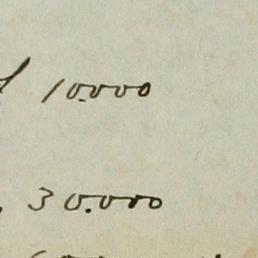 10.000
30.000